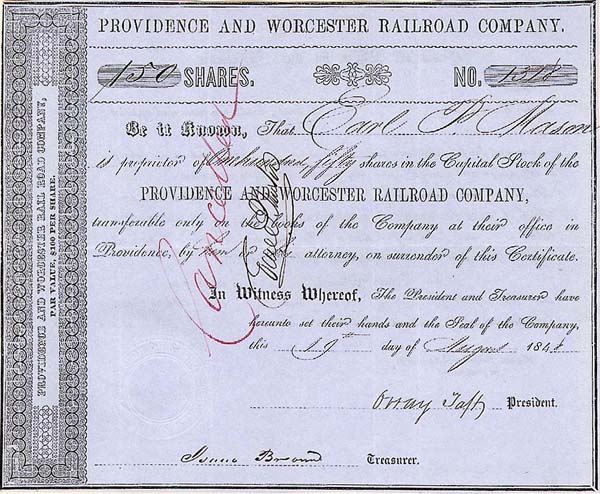 PROVIDENCE AND WORCESTER RAILROAD COMPANY.
150 SHARES. NO. 1318
Be it Known, That Earl P. Mason
is proprietor of One hundred fifty shares in the Capital Stock of the
PROVIDENCE AND WORCESTER RAILROAD COMPANY,
transferable only on the books of the Company at their office in
Providence, by him or his attorney, on surrender of this Certificate.
In Witness Whereof, The President and Treasurer have
hereunto set their hands and the Seal of the Company,
this 19th day of August 1848
Orray Taft President.
Isaac Brown Treasurer.
Cancelled
PROVIDENCE AND WORCESTER RAIL ROAD COMPANY,
PAR VALUE, $100 PER SHARE.